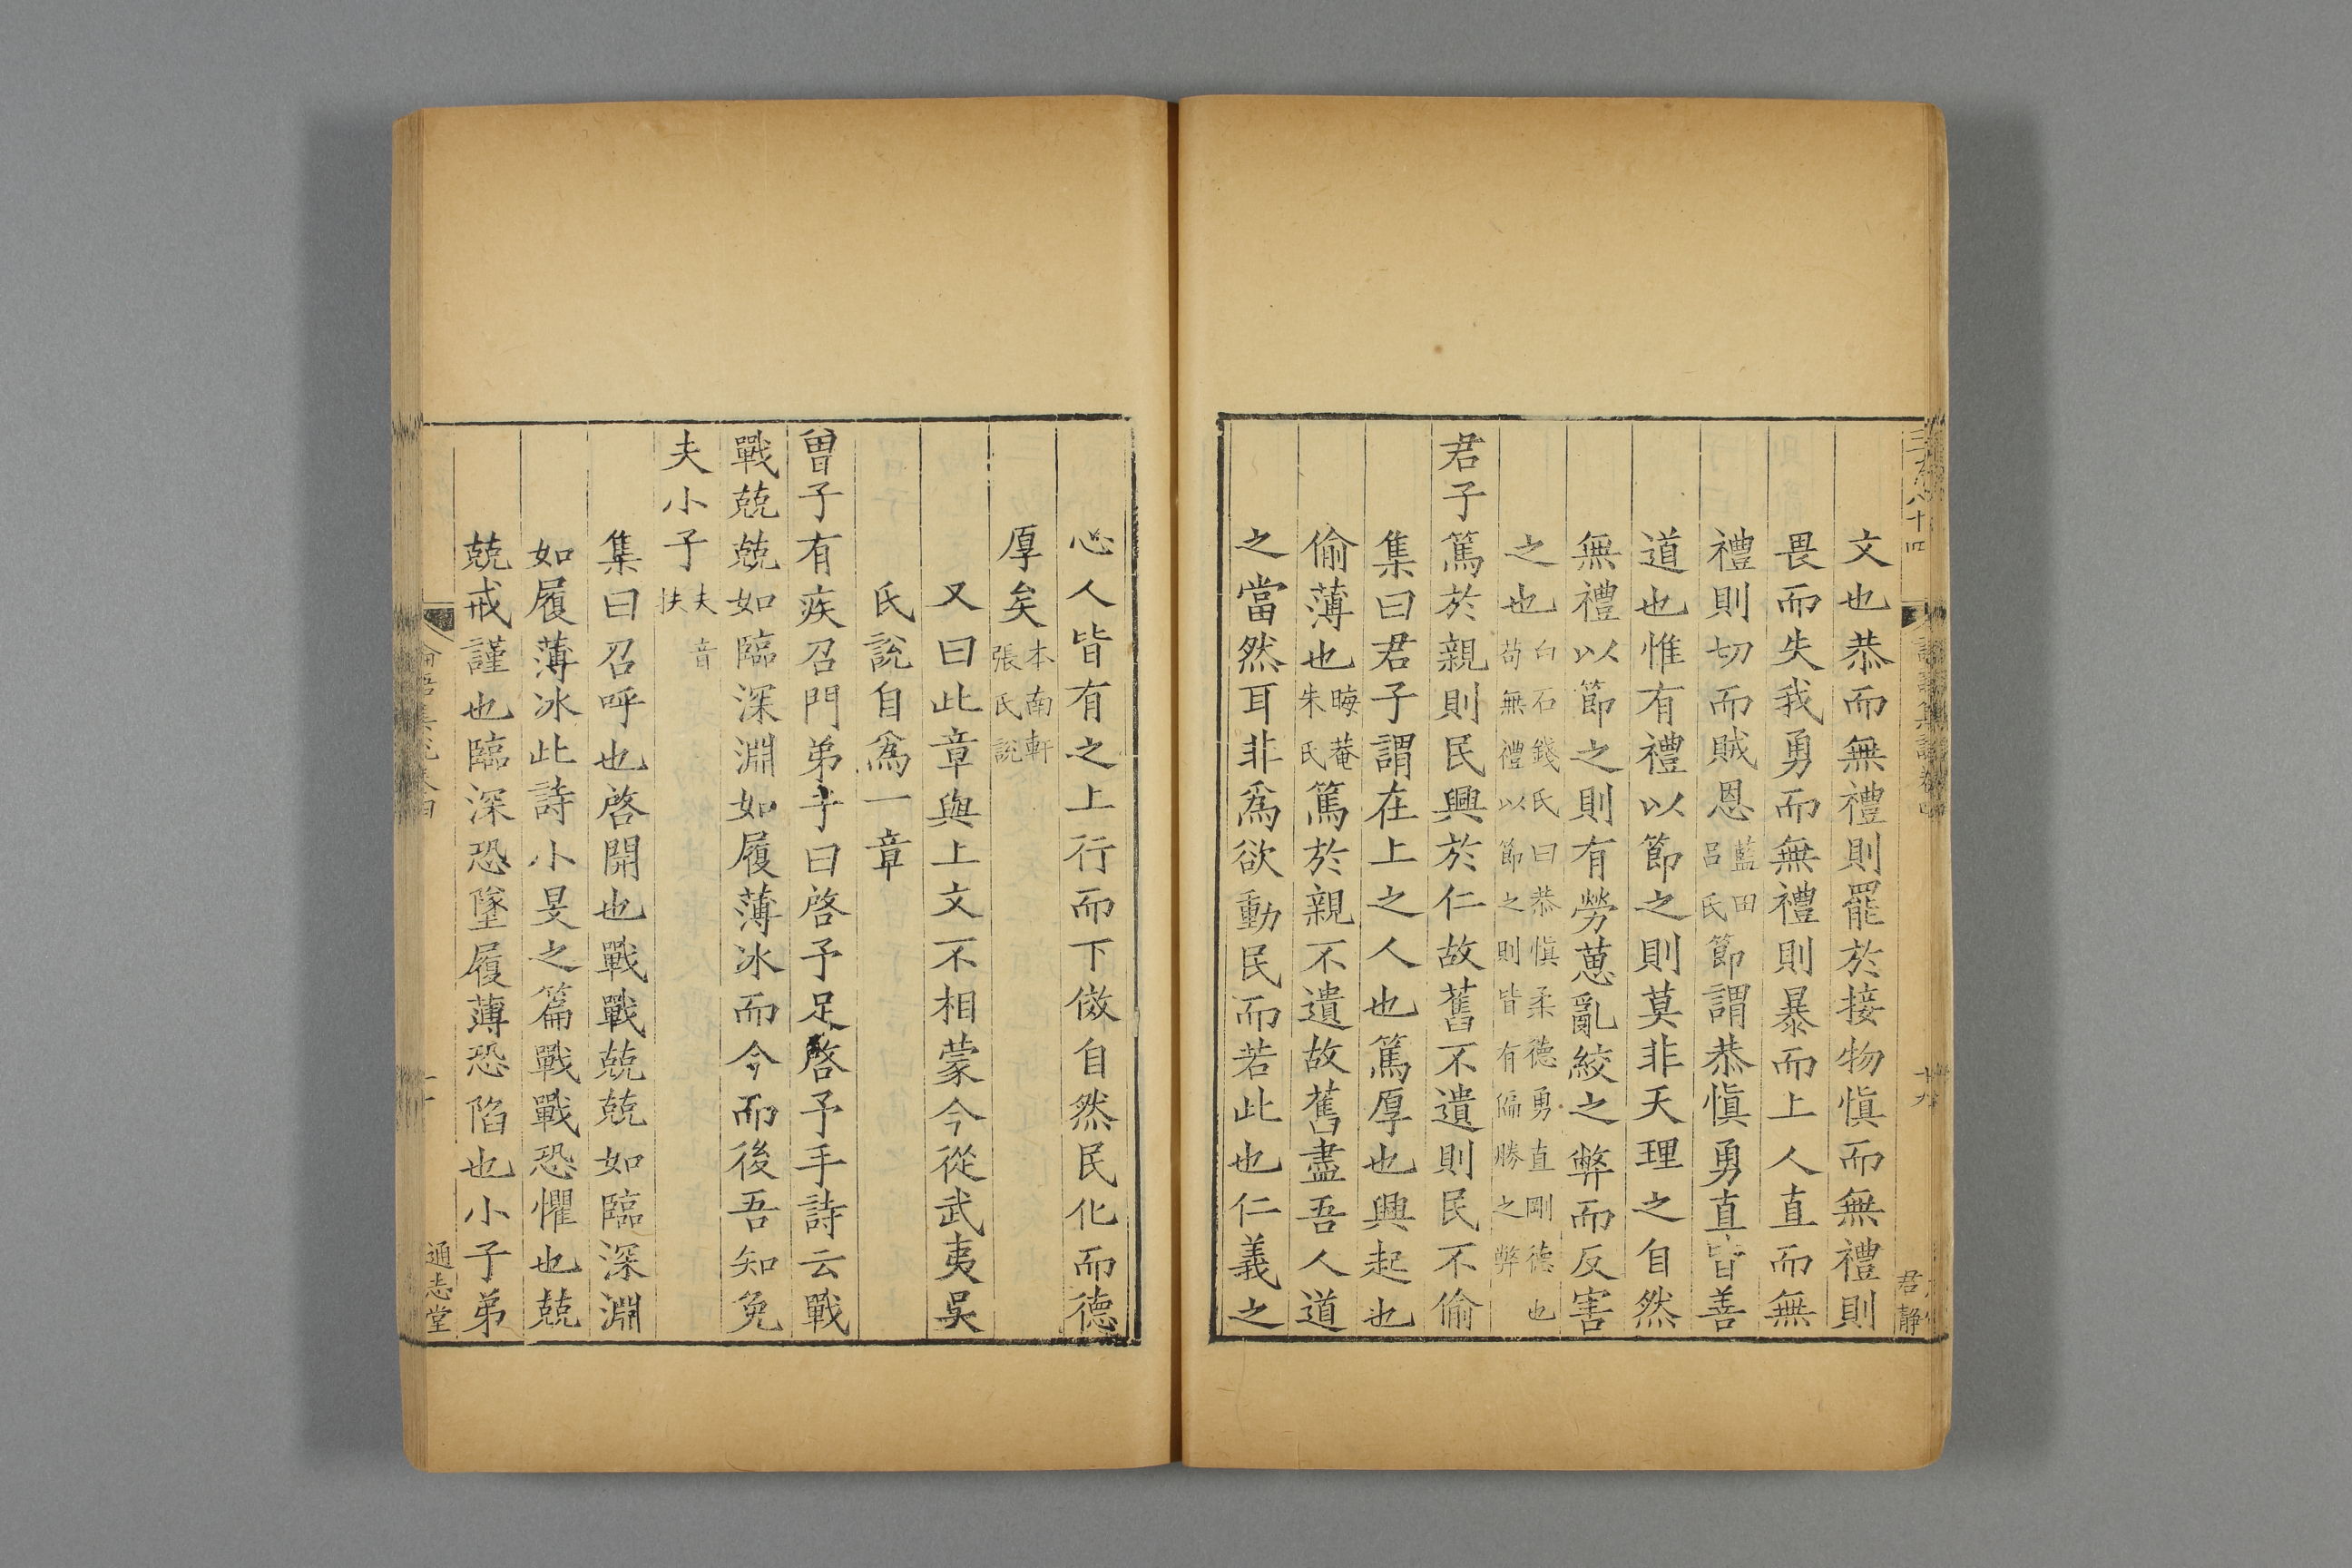 文也恭而無禮則罷於接物慎而無禮則
畏而失我勇而無禮則暴而上人直而無
禮則切而賊恩藍田呂氏節謂恭慎勇直皆善
道也惟有禮以節之則莫非天理之自然
無禮以節之則有勞葸亂絞之弊而反害
之也白石錢氏曰恭慎柔德勇直剛德也苟無禮以節之則皆有偏勝之弊
君子篤於親則民興於仁故舊不遺則民不偷
集曰君子謂在上之人也篤厚也興起也
偷薄也晦菴朱氏篤於親不遺故舊盡吾人道
之當然耳非爲欲動民而若此也仁義之
心人皆有之上行而下傚自然民化而德
厚矣本南軒張氏說
又曰此章與上文不相蒙今從武夷吳
氏說自爲一章
曾子有疾召門弟子曰啓予足啓予手詩云戰
戰兢兢如臨深淵如履薄冰而今而後吾知免
夫小子夫音扶
集曰召呼也啓開也戰戰兢兢如臨深淵
如履薄冰此詩小旻之篇戰戰恐懼也兢
兢戒謹也臨深恐墜履薄恐陷也小子弟
通志堂